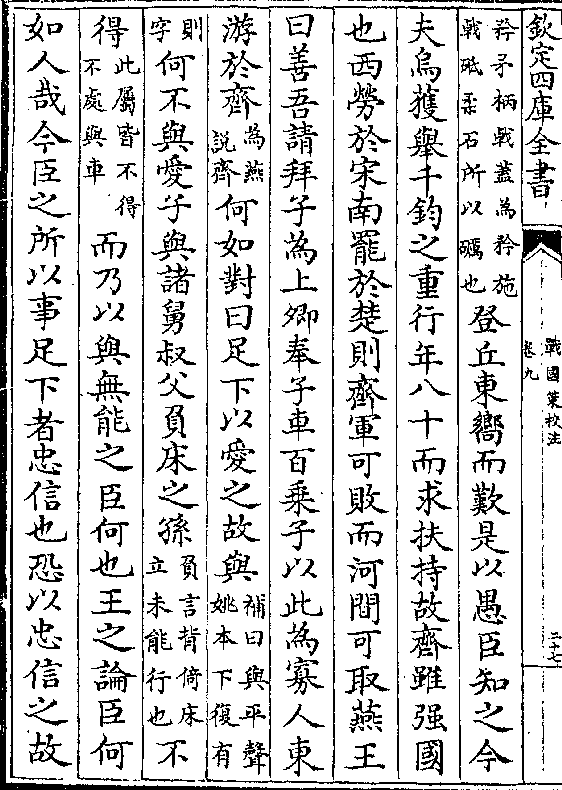 欽定四庫全書
戰國策校注
卷九
二十七
矜矛柄戟蓋為矜施
戟砥柔石所以礪也
登丘東嚮而歎是以愚臣知之今
夫烏獲舉千鈞之重行年八十而求扶持故齊雖强國
也西勞於宋南罷於楚則齊軍可敗而河間可取燕王
曰善吾請拜子為上卿奉子車百乗子以此為寡人東
游於齊
為燕
説齊
何如對曰足下以愛之故與
補曰與平聲
姚本下復有
則
字
何不與愛子與諸舅叔父負床之孫
負言背倚床
立未能行也
不
得
此屬皆不得
不處與車
而乃以與無能之臣何也王之論臣何
如人哉今臣之所以事足下者忠信也恐以忠信之故